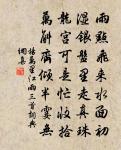 雨點飛來水面初
濕銀盤裏走真珠
龍宮可是忙收拾
萬斛傾半霎無
楊萬里江雨三首詞典
網集